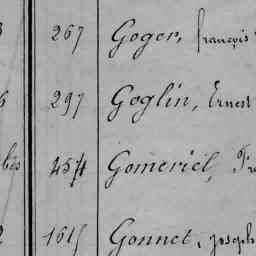 267 Gogor, françois
297 Goglin, Ernest
bis 454 Gomeriel, Fra
1615 Gonnet, Joseph